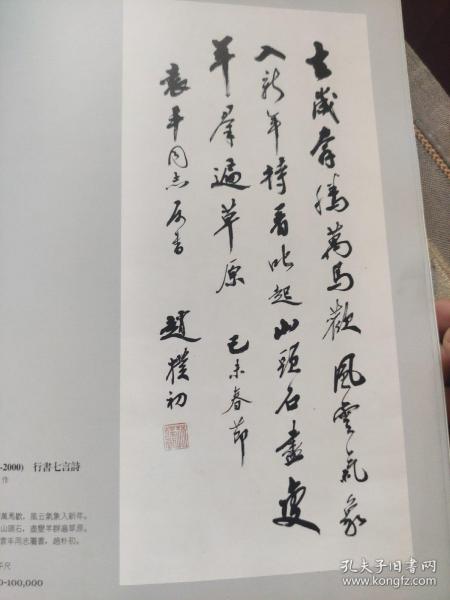 去歲奔騰萬馬歡風雲氣象
入新年待看叱起山頭石盡變
羊羣遍草原 己未春節
同志属書 趙樸初
-2000) 行書七言詩
作
萬馬歡，風云氣象入新年。
山頭石，盡變羊群遍草原。
同志囑書，趙朴初。
平尺
0-100,000
孔夫子旧书网